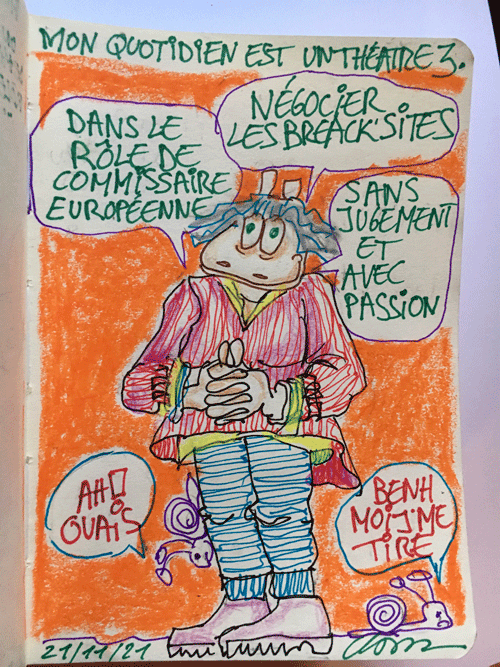 MON QUOTIDIEN EST UN THÉATRE 3.
DANS LE
RÔLE DE
COMMISSAIRE
EUROPÉENNE
NÉGOCIER
LES BREACK'SITES
SANS
JUGEMENT
ET
AVEC
PASSION
AH!
OUAIS
BENH
MOI J'ME
TIRE
21/11/21